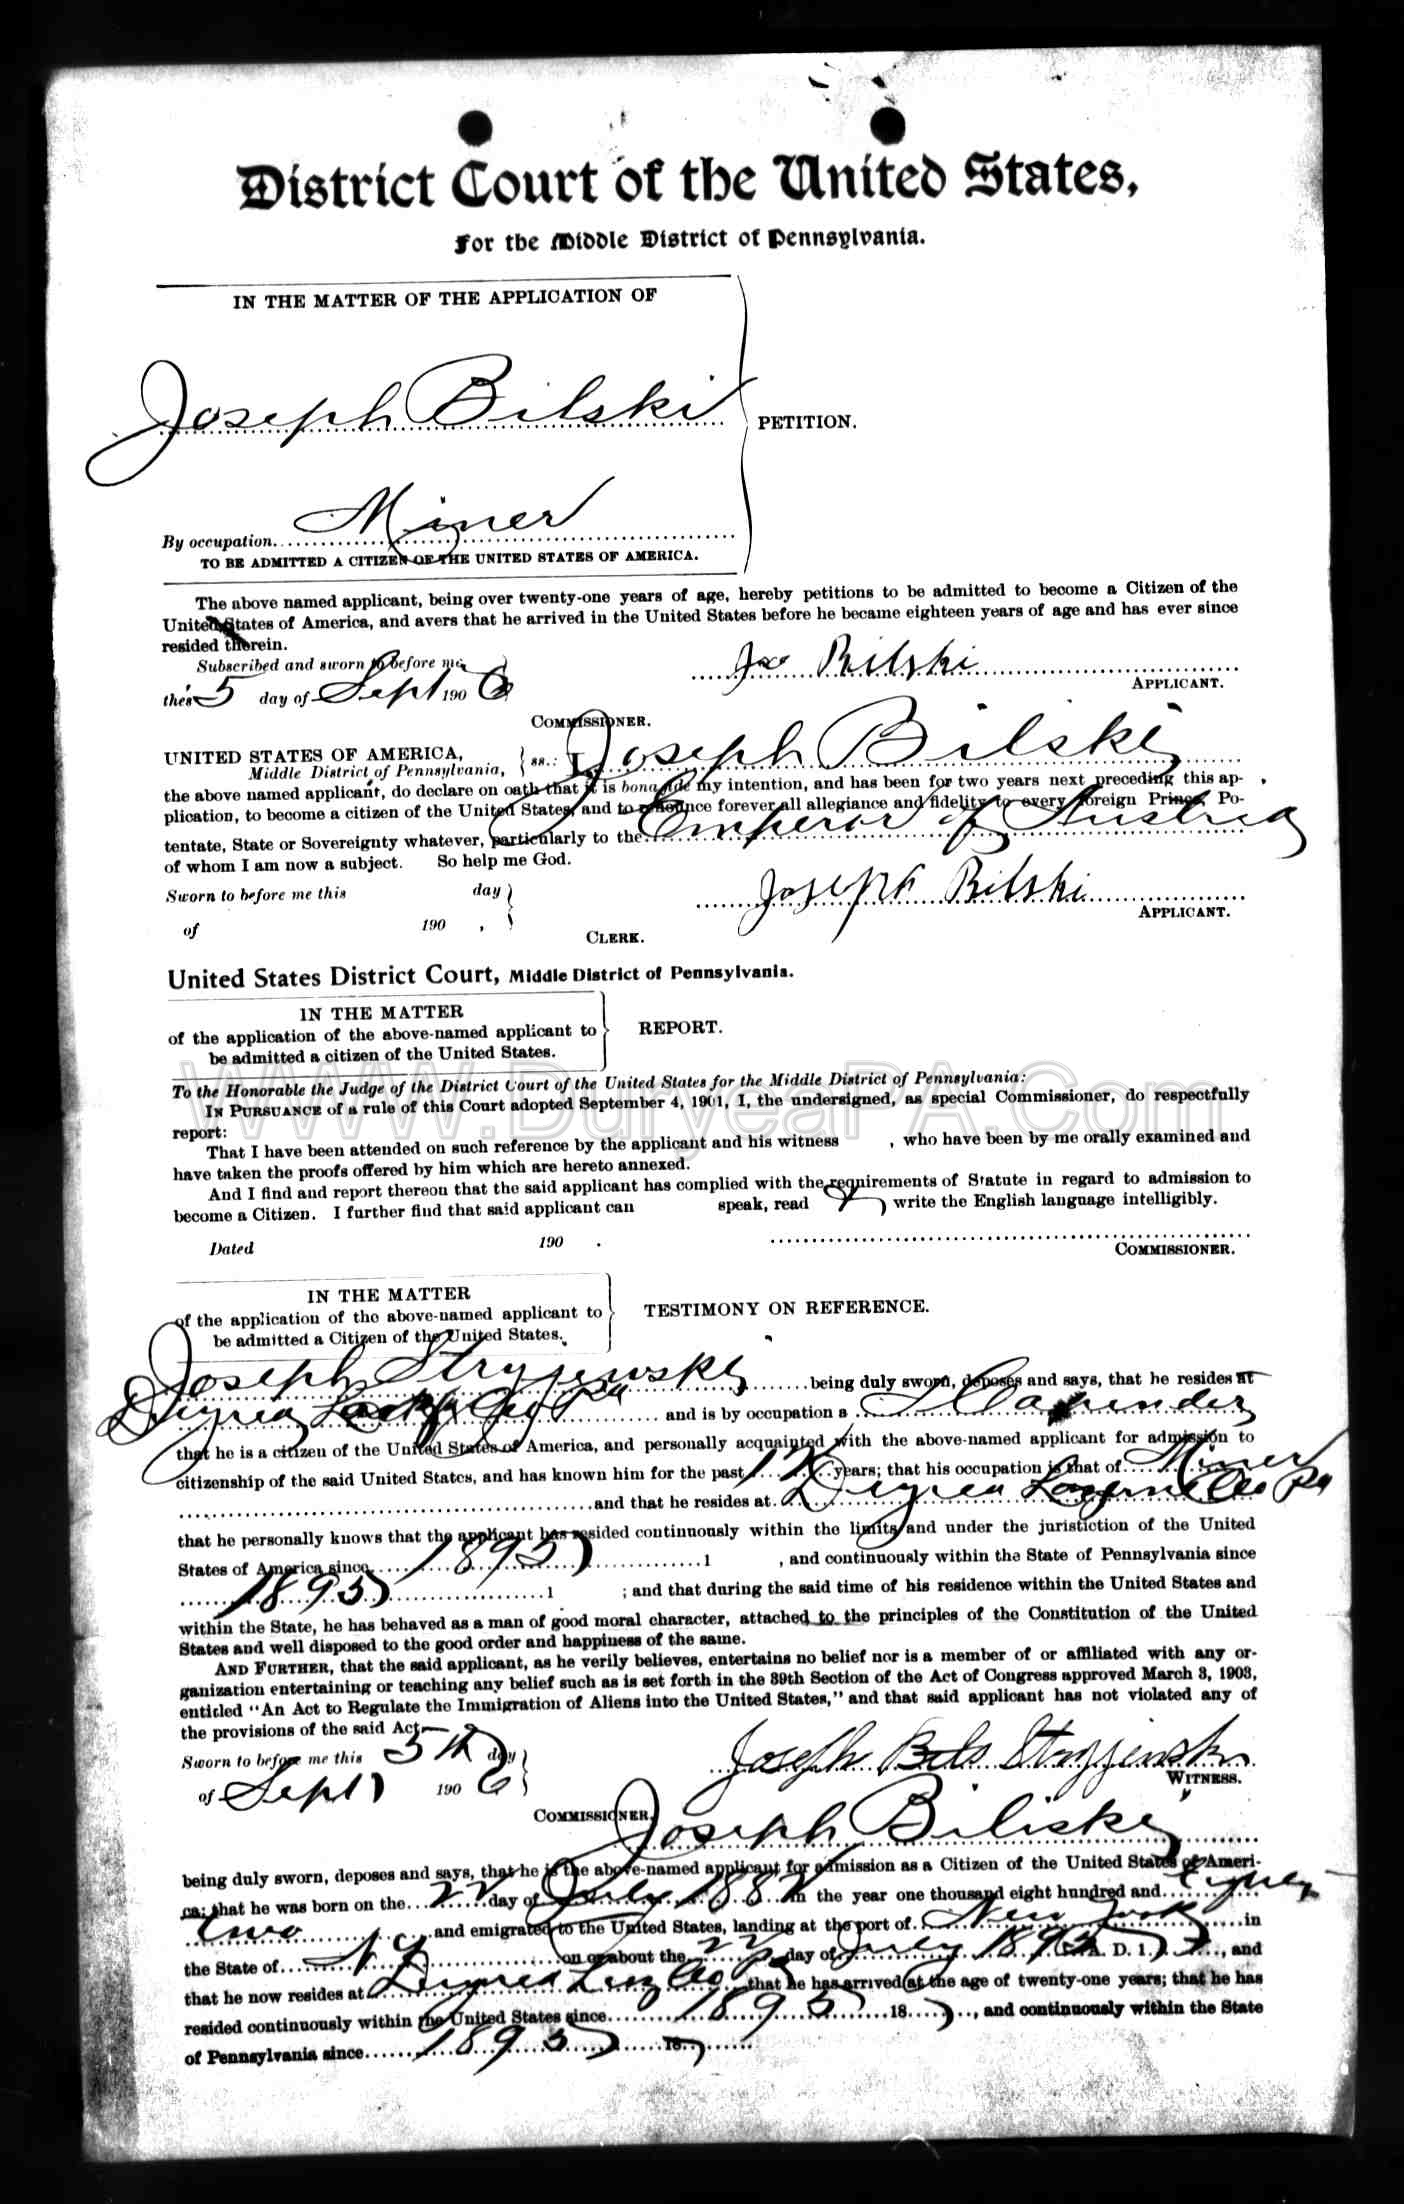 District Court of the United States,
For the Middle District of Pennsylvania.
IN THE MATTER OF THE APPLICATION OF
Joseph Bilski
PETITION.
Miner
By occupation
TO BE ADMITTED A CITIZEN OF THE UNITED STATES OF AMERICA.
The above named applicant, being over twenty-one years of age, hereby petitions to be admitted to become a Citizen of the
United States of America, and avers that he arrived in the United States before he became eighteen years of age and has ever since
resided therein.
Subscribed and sworn to before me
Joe Bilski
APPLICANT.
the 5 day of Sept 1906
COMMISSIONER.
UNITED STATES OF AMERICA, ss.: I, Joseph Bilski
Middle District of Pennsylvania,
the above named applicant, do declare on oath that it is bona fide my intention, and has been for two years next preceding this ap-
plication, to become a citizen of the United States, and to renounce forever all allegiance and fidelity to every foreign Prince, Po-
tentate, State or Sovereignty whatever, particularly to the Emperor of Austria
of whom I am now a subject. So help me God.
Sworn to before me this day
Joseph Bilski
APPLICANT.
of 190 ,
CLERK.
United States District Court, Middle District of Pennsylvania.
IN THE MATTER
of the application of the above-named applicant to
be admitted a citizen of the United States.
REPORT.
WWW.DuryeaPA.Com
To the Honorable the Judge of the District Court of the United States for the Middle District of Pennsylvania:
IN PURSUANCE of a rule of this Court adopted September 4, 1901, I, the undersigned, as special Commissioner, do respectfully
report:
That I have been attended on such reference by the applicant and his witness , who have been by me orally examined and
have taken the proofs offered by him which are hereto annexed.
And I find and report thereon that the said applicant has complied with the requirements of Statute in regard to admission to
become a Citizen. I further find that said applicant can speak, read & write the English language intelligibly.
Dated 190 .
COMMISSIONER.
IN THE MATTER
of the application of the above-named applicant to
be admitted a Citizen of the United States.
TESTIMONY ON REFERENCE.
Joseph Stryjewski being duly sworn, deposes and says, that he resides at
Duryea Pa and is by occupation a
that he is a citizen of the United States of America, and personally acquainted with the above-named applicant for admission to
citizenship of the said United States, and has known him for the past 12 years; that his occupation is that of Miner
and that he resides at Duryea Luzerne Co Pa
that he personally knows that the applicant has resided continuously within the limits and under the juristiction of the United
States of America since 1895 1 , and continuously within the State of Pennsylvania since
1895 1 ; and that during the said time of his residence within the United States and
within the State, he has behaved as a man of good moral character, attached to the principles of the Constitution of the United
States and well disposed to the good order and happiness of the same.
AND FURTHER, that the said applicant, as he verily believes, entertains no belief nor is a member of or affiliated with any or-
ganization entertaining or teaching any belief such as is set forth in the 39th Section of the Act of Congress approved March 3, 1903,
entitled "An Act to Regulate the Immigration of Aliens into the United States," and that said applicant has not violated any of
the provisions of the said Act
Sworn to before me this 5th day
of Sept 1906
Joseph Stryjewski
WITNESS.
COMMISSIONER.
Joseph Biliski
being duly sworn, deposes and says, that he is the above-named applicant for admission as a Citizen of the United States of Ameri-
ca; that he was born on the 22 day of July 1882 in the year one thousand eight hundred and eighty
two and emigrated to the United States, landing at the port of New York in
the State of N Y on or about the 22 day of July 1895 A. D. 1 , and
that he now resides at Duryea Luz Co that he has arrived at the age of twenty-one years; that he has
resided continuously within the United States since 1895 18 , and continuously within the State
of Pennsylvania since 1895 18